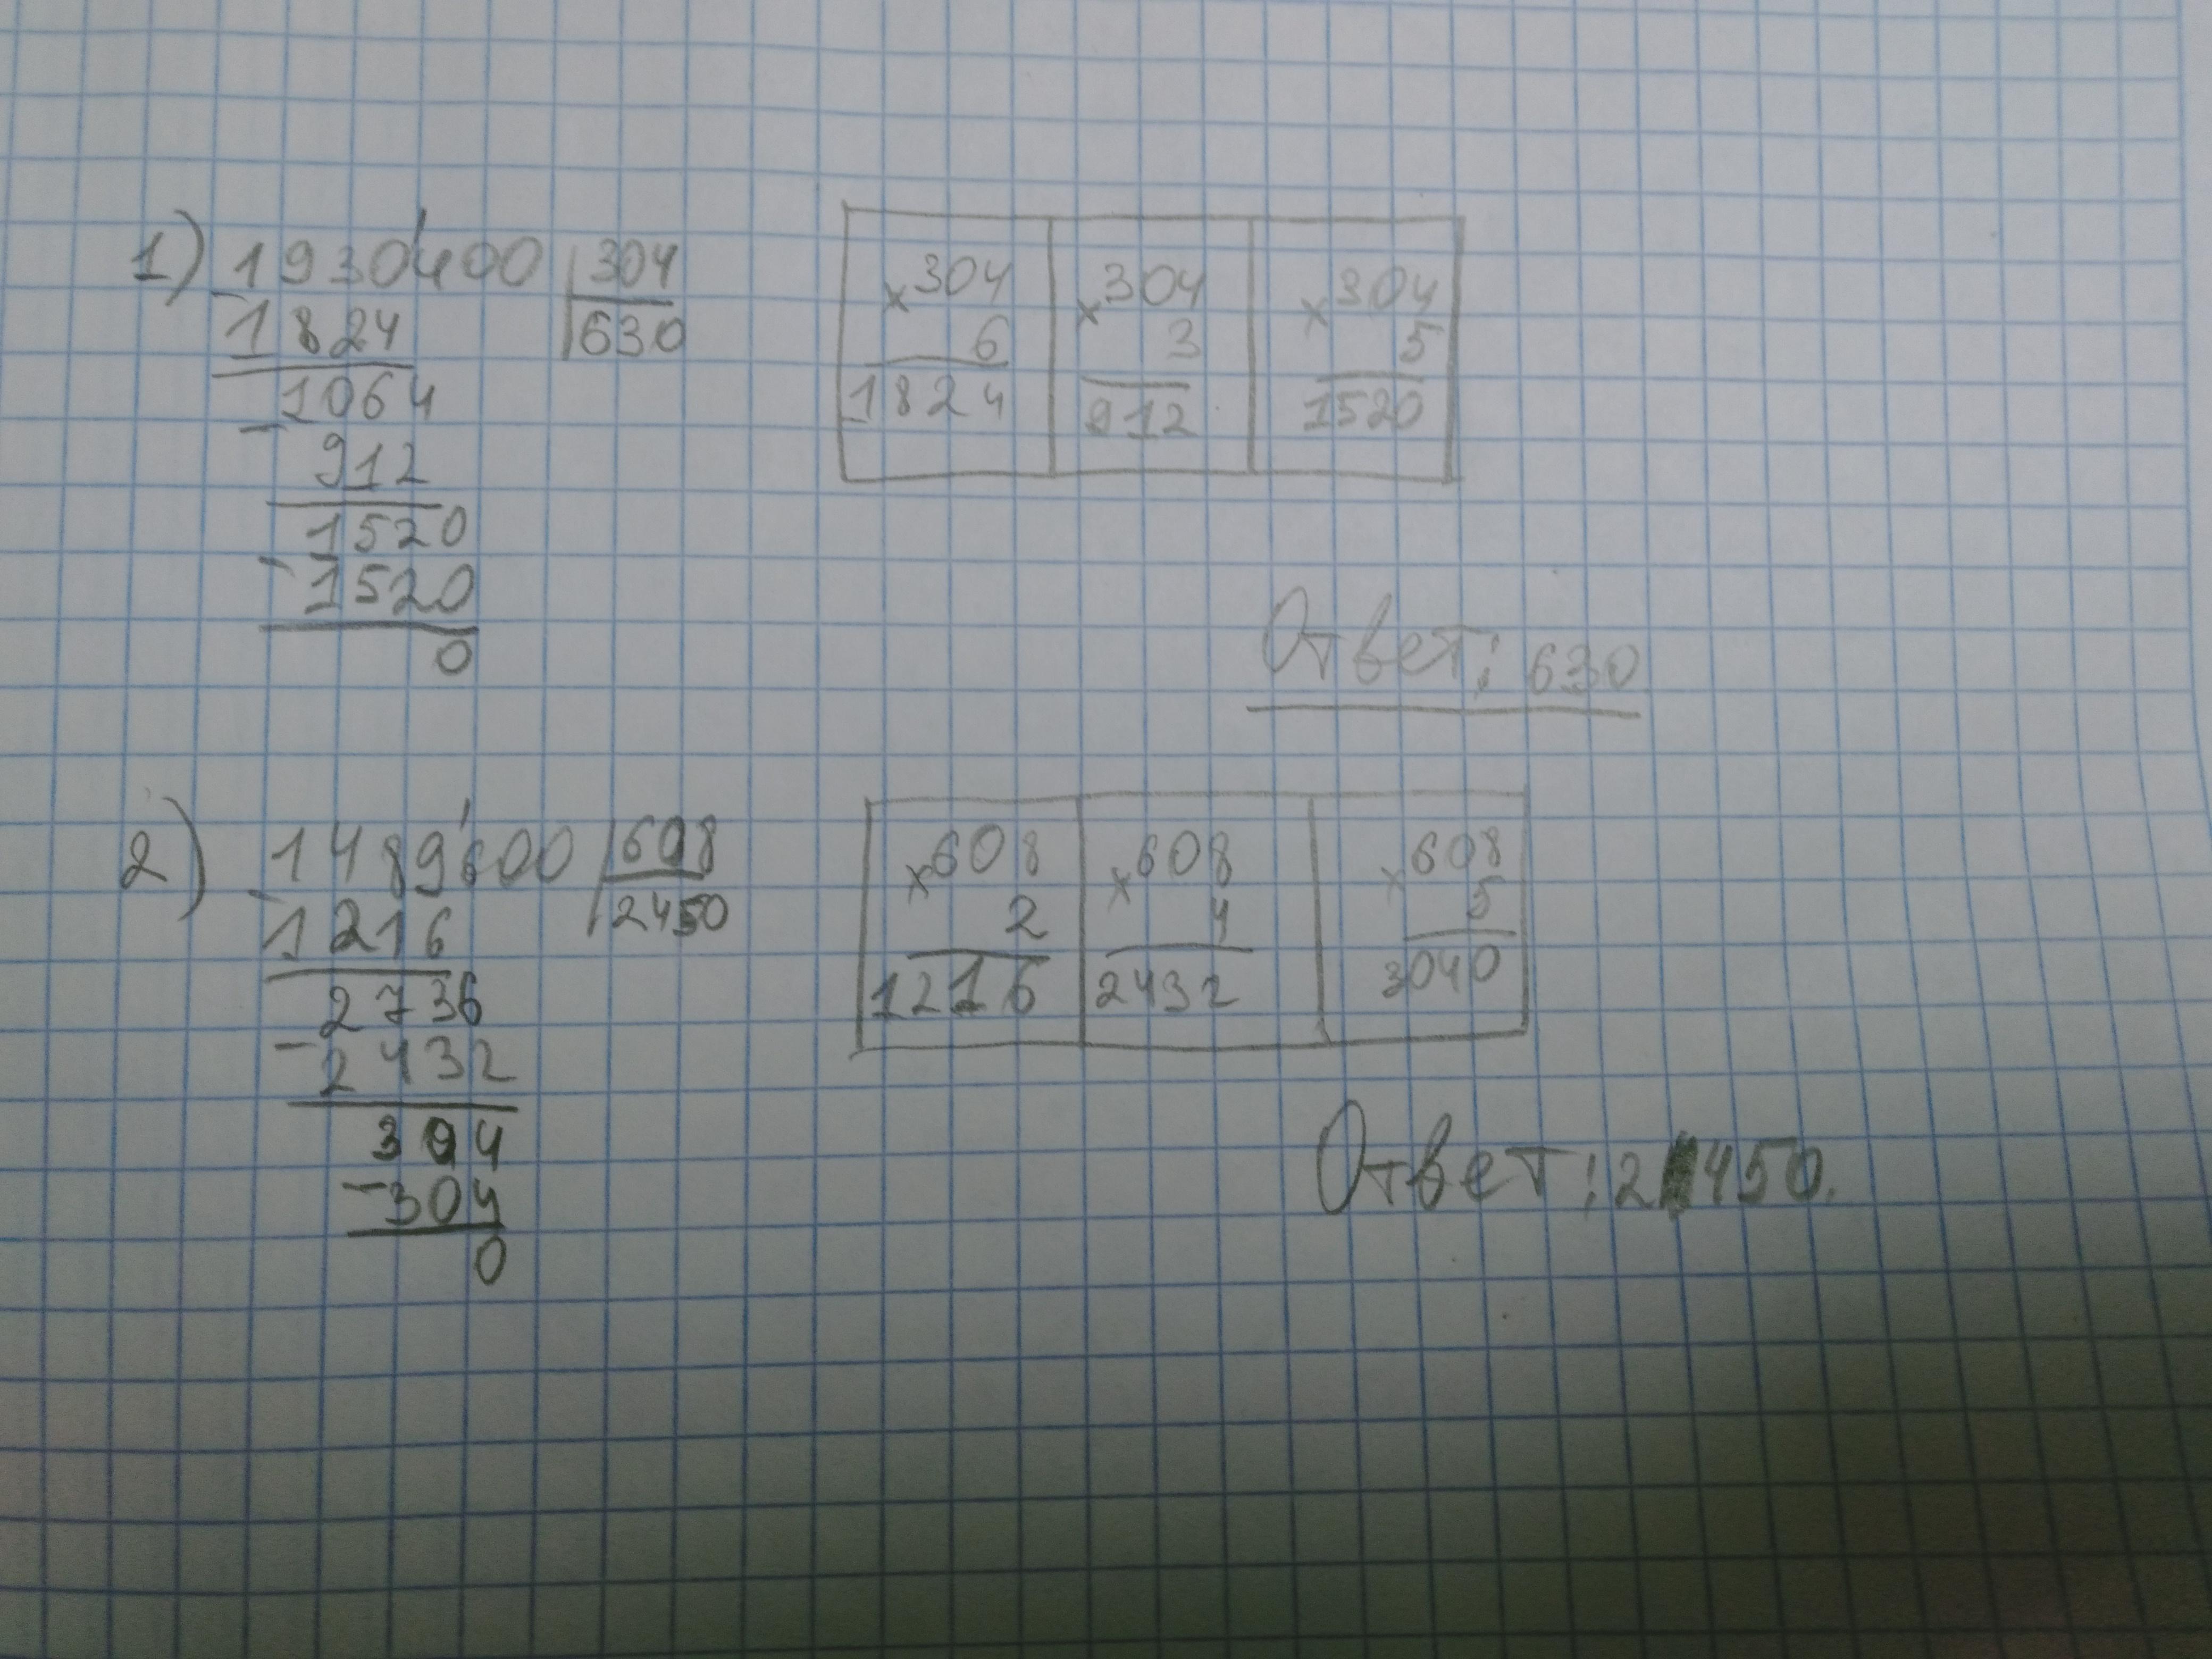 1) 1930400 | 304
- 1824 | 630
1064
- 912
1520
- 1520
0
× 304
6
1824
× 304
3
912
× 304
5
1520
Ответ: 630
2) 1489600 | 608
- 1216 | 2450
2736
- 2432
304
- 304
0
× 608
2
1216
× 608
4
2432
× 608
5
3040
Ответ: 2450.